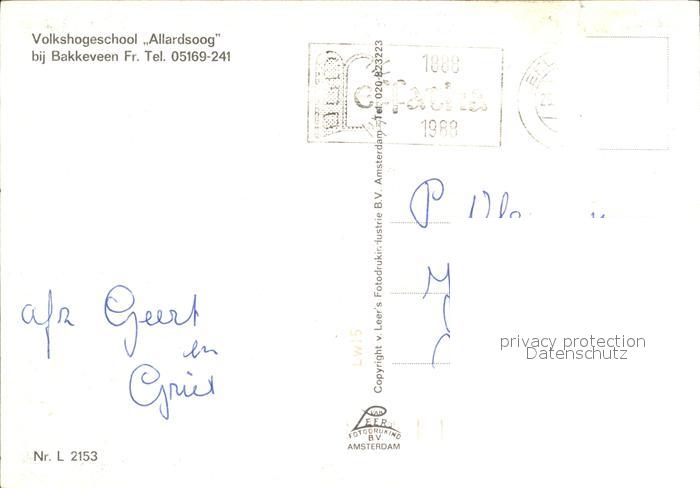 Volkshogeschool „Allardsoog”
bij Bakkeveen Fr. Tel. 05169-241
1888
1988
afz Geert
en
Griet
P
LW15
Copyright v. Leer's Fotodrukindustrie B.V. Amsterdam - Tel. 020-823223
privacy protection
Datenschutz
VAN
LEER
FOTODRUKIND
B.V.
AMSTERDAM
Nr. L 2153